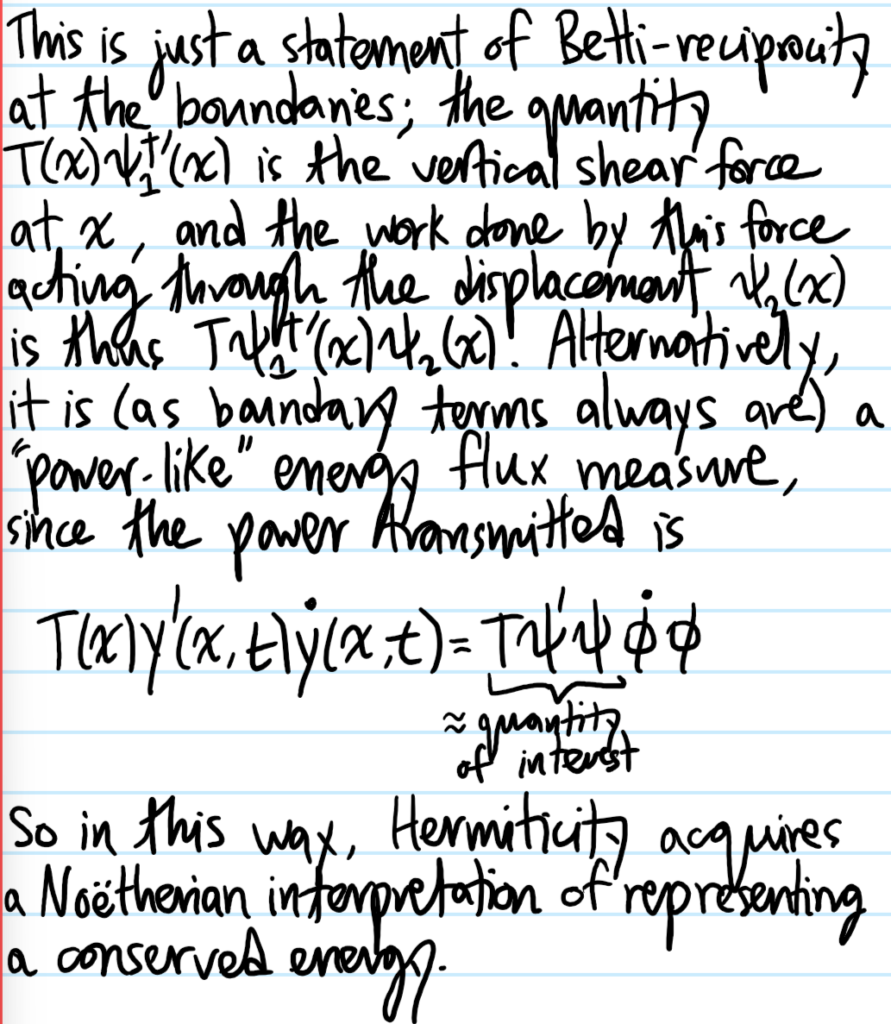 This is just a statement of Betti-reciprocity
at the boundaries; the quantity
T(x)ψ₁†'(x) is the vertical shear force
at x, and the work done by this force
acting through the displacement ψ₂(x)
is thus Tψ₁†'(x)ψ₂(x). Alternatively,
it is (as boundary terms always are) a
"power-like" energy flux measure,
since the power transmitted is
T(x)y'(x,t)ẏ(x,t) = Tψ'ψ φ̇φ
≈ quantity
of interest
So in this way, Hermiticity acquires
a Noëtherian interpretation of representing
a conserved energy.